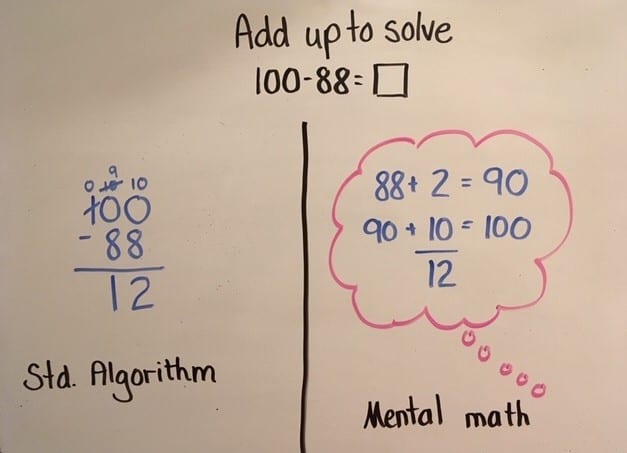 Add up to solve
100-88=□
9
0 10 10
100
- 88
12
Std. Algorithm
88+ 2 = 90
90 + 10 = 100
12
Mental math